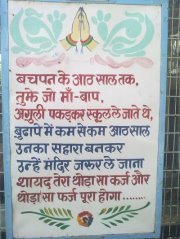 बचपन के आठ साल तक,
तुझे जो माँ-बाप,
अंगुली पकड़कर स्कूल ले जाते थे,
बुढापे में कम से कम आठ साल
उनका सहारा बनकर
उन्हें मंदिर जरूर ले जाना
शायद तेरा थोड़ा सा कर्ज और
थोड़ा सा फर्ज पूरा होगा........